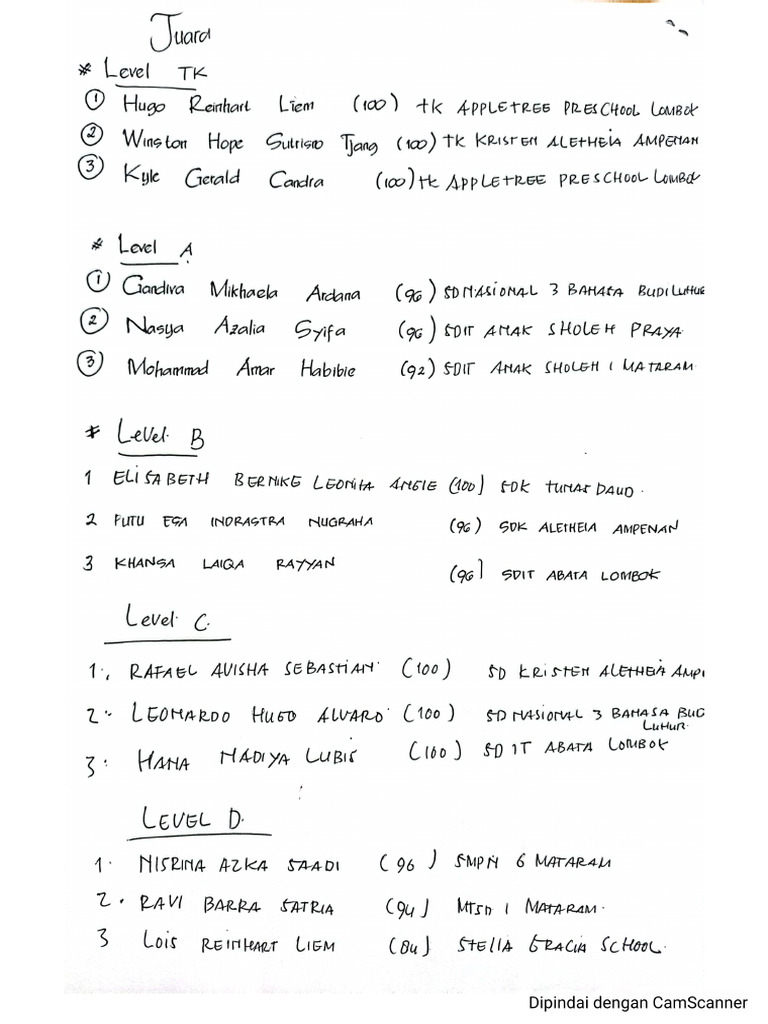 Juara
* Level TK
① Hugo Reinhart Liem (100) TK APPLETREE PRESCHOOL LOMBOK
② Winston Hope Sutrisno Tjang (100) TK KRISTEN ALETHEIA AMPENAN
③ Kyle Gerald Candra (100) TK APPLETREE PRESCHOOL LOMBOK
* Level A
① Gandiva Mikhaela Ardana (96) SD NASIONAL 3 BAHASA BUDI LUHUR
② Nasya Azalia Syifa (96) SDIT ANAK SHOLEH PRAYA
③ Mohammad Amar Habibie (92) SDIT ANAK SHOLEH 1 MATARAM
* Level B
1 ELISABETH BERNIKE LEONITA ANGIE (100) SDK TUNAS DAUD
2 PUTU EGA INDRASTRA NUGRAHA (96) SDK ALETHEIA AMPENAN
3 KHANSA LAIQA RAYYAN (96) SDIT ABATA LOMBOK
Level C.
1. RAFAEL AVISHA SEBASTIAN (100) SD KRISTEN ALETHEIA AMPE
2. LEONARDO HUGO ALVARO (100) SD NASIONAL 3 BAHASA BUD
LUHUR
3. HANA NADIYA LUBIS (100) SD IT ABATA LOMBOK
LEVEL D.
1. NISRINA AZKA SAADI (96) SMPN 6 MATARAM
2. RAVI BARRA SATRIA (94) MTSN 1 MATARAM.
3 LOIS REINHART LIEM (84) STELLA GRACIA SCHOOL.
Dipindai dengan CamScanner